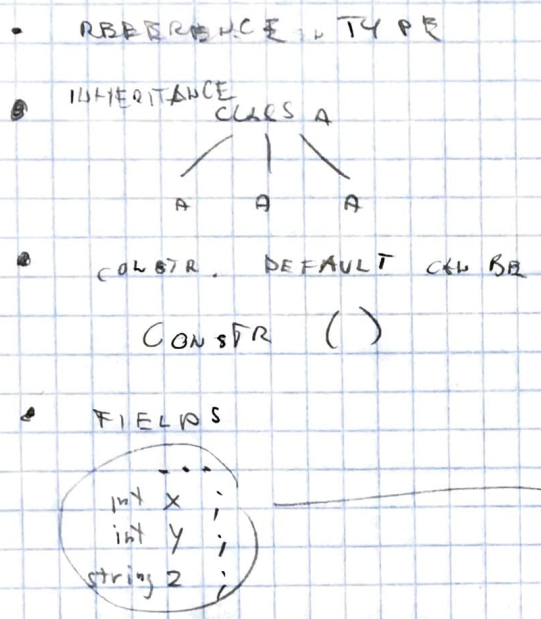 • REFERENCE TYPE
• INHERITANCE
CLASS A
A A A
• CONSTR. DEFAULT CAN BE
CONSTR ( )
• FIELDS
...
int x ;
int y ;
string z ;